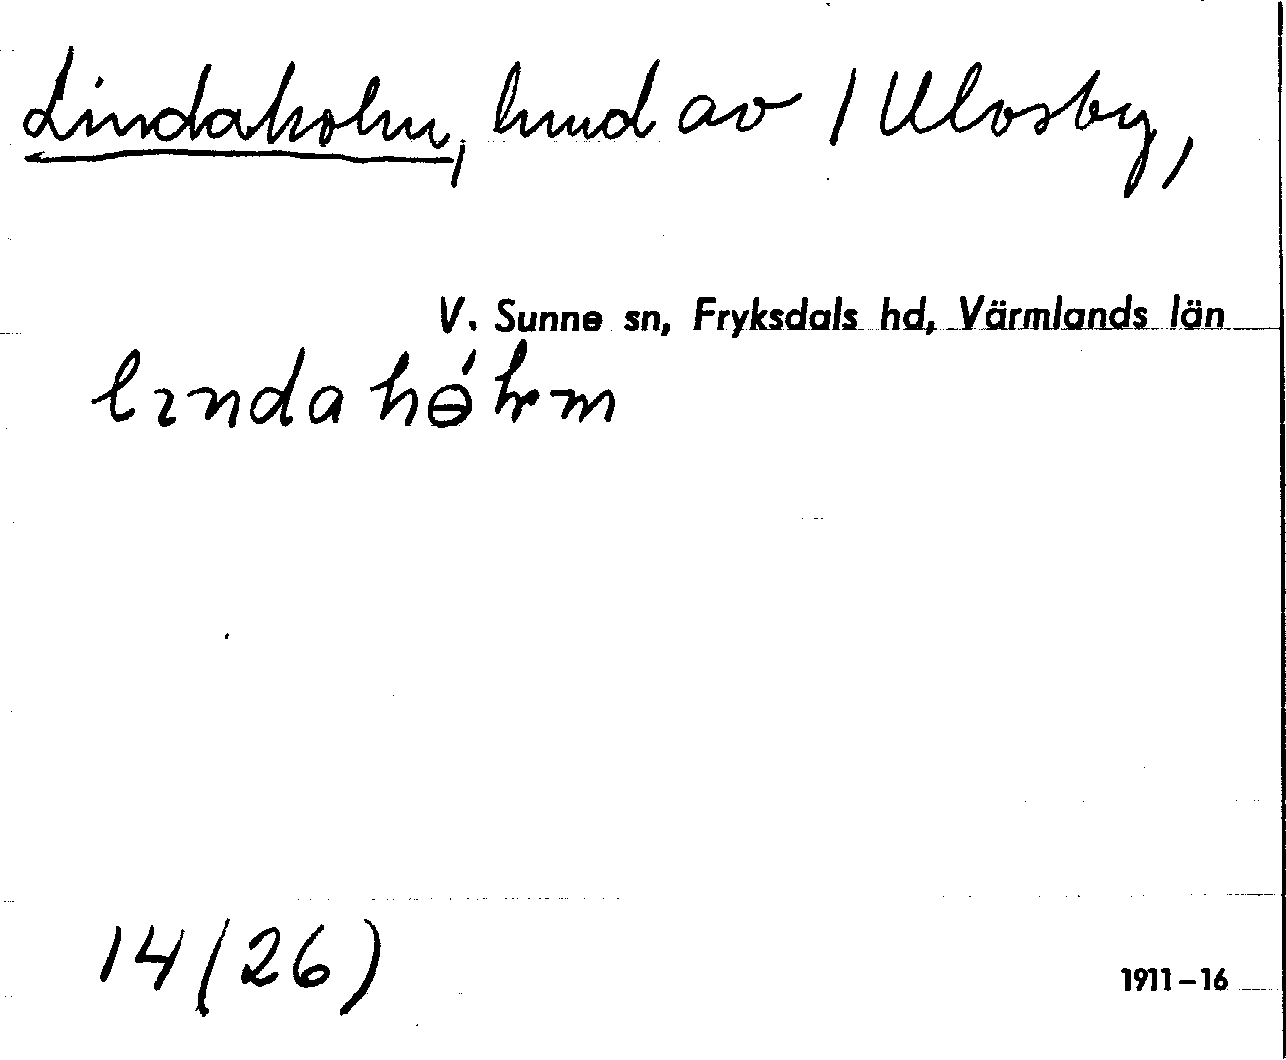 Lindaholm, hmd av 1 Ulvsby,
V. Sunne sn, Fryksdals hd, Värmlands län
lındahɵ́ɫm
14 (26)
1911–16